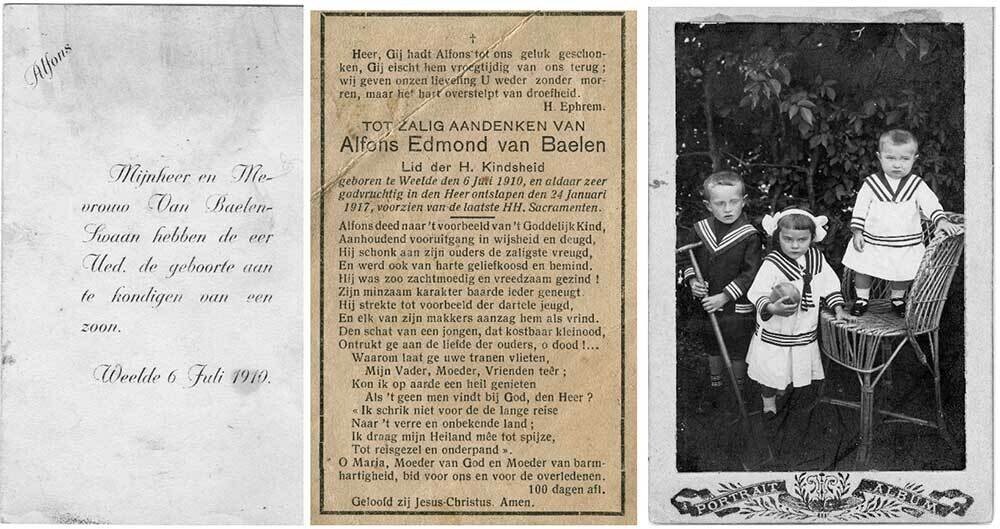 Alfons
Mijnheer en Me-
vrouw Van Baelen-
Swaan hebben de eer
Ued. de geboorte aan
te kondigen van een
zoon.
Weelde 6 Juli 1910.
Heer, Gij hadt Alfons tot ons geluk geschon-
ken, Gij eischt hem vroegtijdig van ons terug ;
wij geven onzen lieveling U weder zonder mor-
ren, maar het hart overstelpt van droefheid.
H. Ephrem.
TOT ZALIG AANDENKEN VAN
Alfons Edmond van Baelen
Lid der H. Kindsheid
geboren te Weelde den 6 Juli 1910, en aldaar zeer
godvruchtig in den Heer ontslapen den 24 Januari
1917, voorzien van de laatste HH. Sacramenten.
Alfons deed naar 't voorbeeld van 't Goddelijk Kind,
Aanhoudend vooruitgang in wijsheid en deugd,
Hij schonk aan zijn ouders de zaligste vreugd,
En werd ook van harte geliefkoosd en bemind.
Hij was zoo zachtmoedig en vreedzaam gezind !
Zijn minzaam karakter baarde ieder geneugt
Hij strekte tot voorbeeld der dartele jeugd,
En elk van zijn makkers aanzag hem als vrind.
Den schat van een jongen, dat kostbaar kleinood,
Ontrukt ge aan de liefde der ouders, o dood !...
Waarom laat ge uwe tranen vlieten,
Mijn Vader, Moeder, Vrienden teêr ;
Kon ik op aarde een heil genieten
Als 't geen men vindt bij God, den Heer ?
« Ik schrik niet voor de de lange reise
Naar 't verre en onbekende land ;
Ik draag mijn Heiland mêe tot spijze,
Tot reisgezel en onderpand ».
O Maria, Moeder van God en Moeder van barm-
hartigheid, bid voor ons en voor de overledenen.
100 dagen afl.
Geloofd zij Jesus-Christus. Amen.
PORTRAIT ALBUM